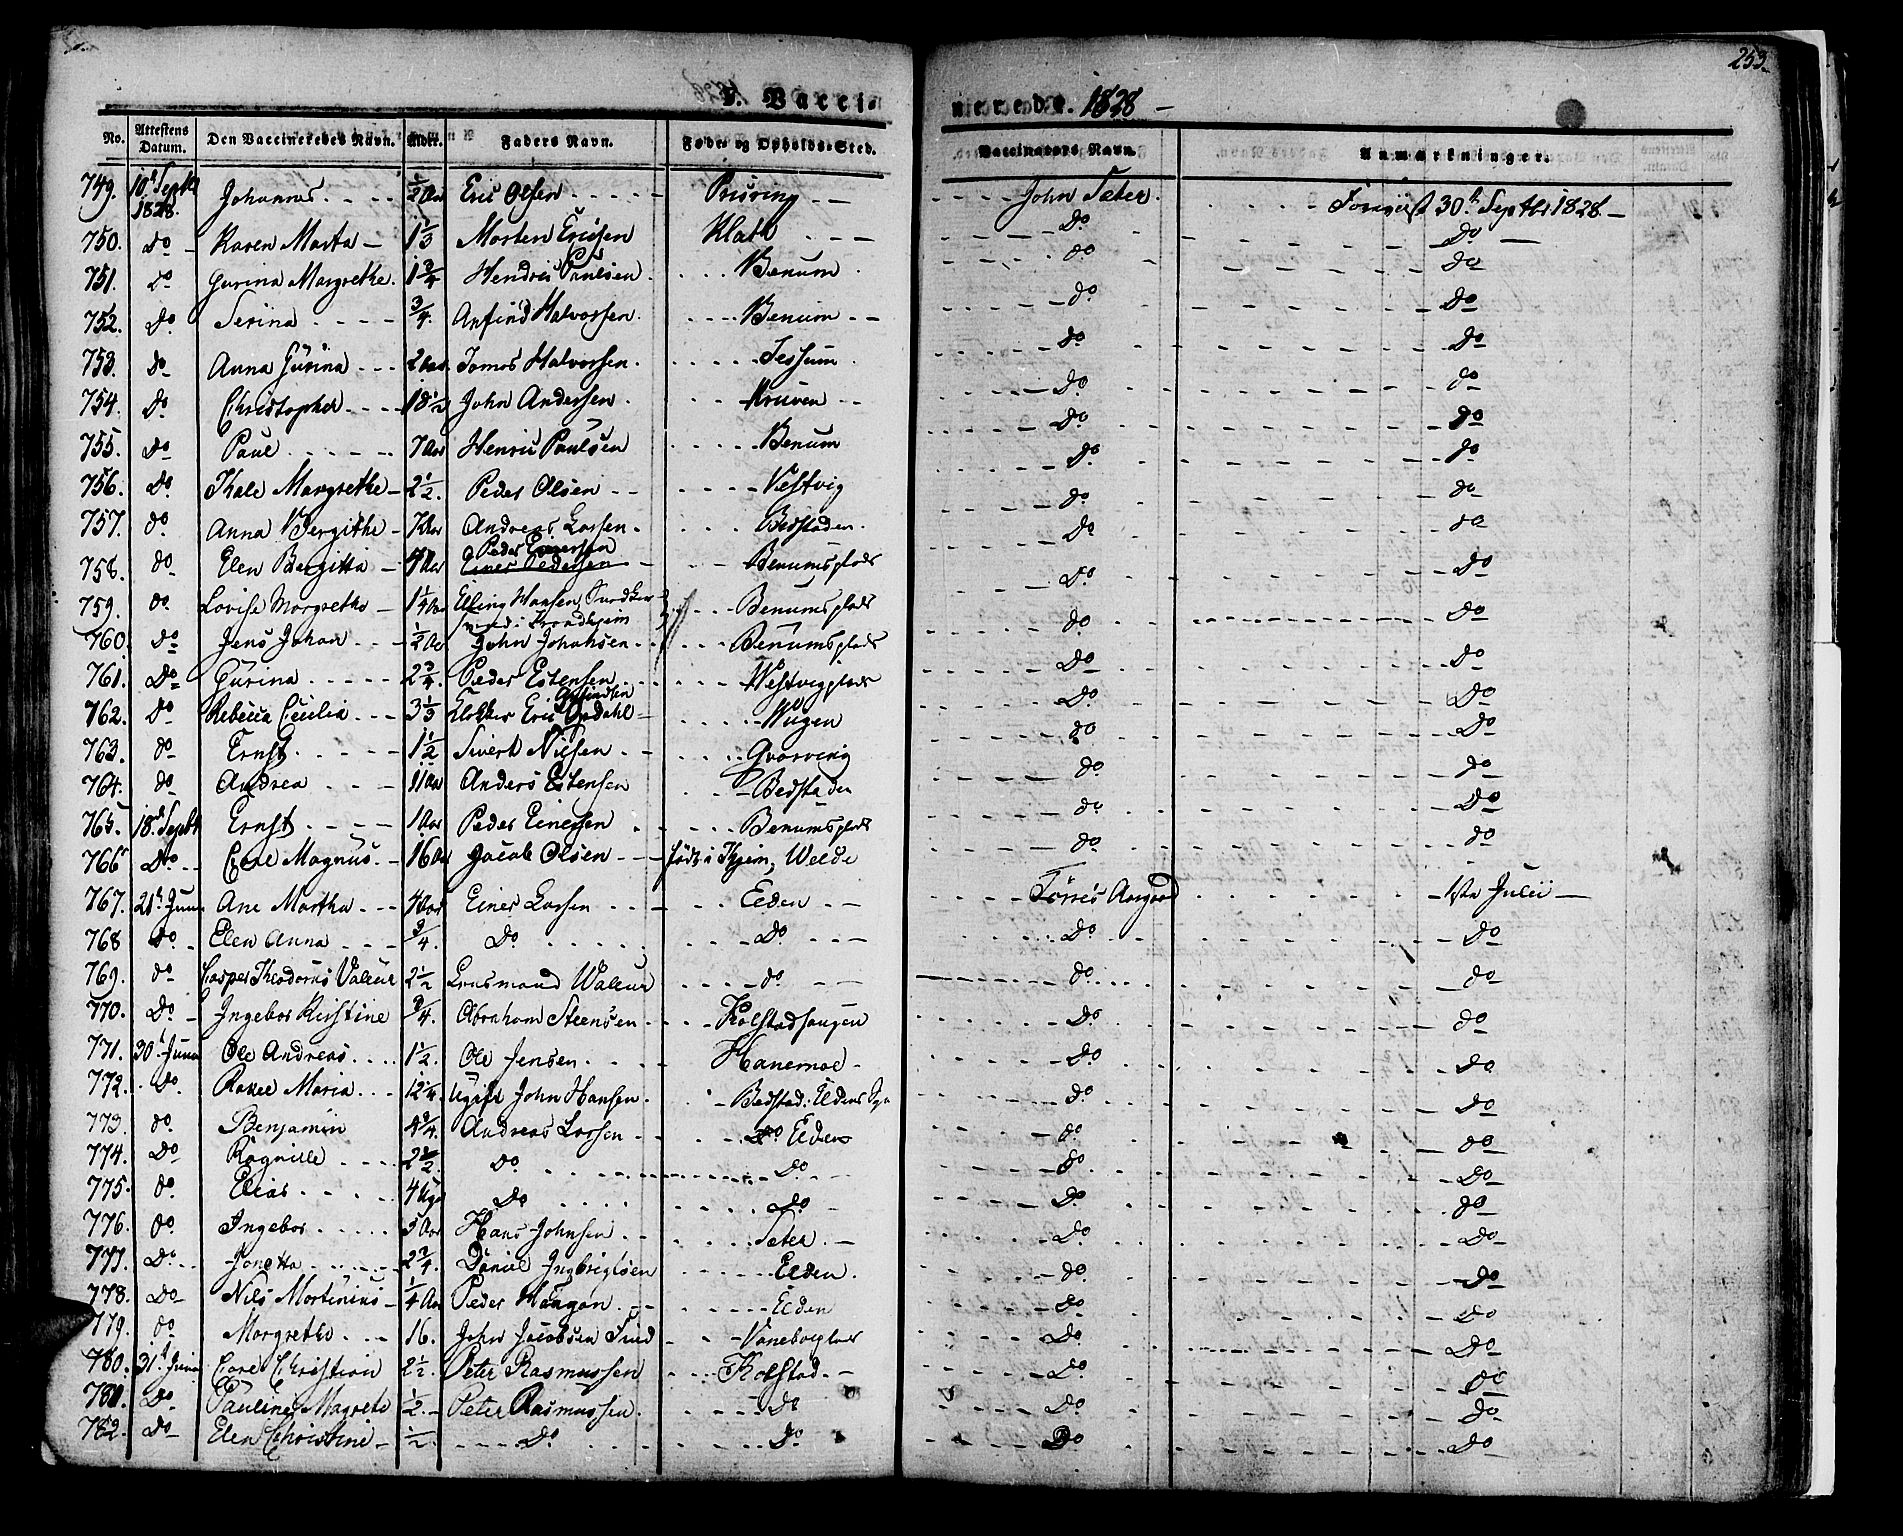 253.
V. Vaccinerede. 1828 -
No. Attestens Datum. Den Vaccineredes Navn. Alder. Faders Navn. Føde- og Opholds-Sted. Vaccinators Navn. Anmærkninger.
749. 10d Septbr 1828. Johannes 1/2 Aar Eric Olsen John Sæter 30te Septbr 1828.
750. Do Karen Marta 1 1/3 Morten Ericsen Do Do
751. Do Gurina Margrethe. 1 3/4 Hendric Paulsen Benum do do
752. Do Serina 3/4. Anfind Halvorsen. Benum do Do
753. Do Anna Gurina 2 Aar Tomas Halvorsen. Jessum do Do
754. Do Christopher 18 1/2 John Andersen Kruven Do do
755. Do Paul 7 Aar Henric Paulsen Benum Do do
756. Do Margrethe 2 1/2. Peder Olsen Vestvig do do
757. do. Anna Bergithe Andreas Larsen. Bedstaden do do
758. do Elen Bergitta Aar Peder Einersen Einer Pedersen Benumsplads Do Do
759. do. Lovise Margrethe 1 1/4 Aar Elling Hansen, Trondhjem Benumsplads Do do
760. Do Jens Johan 1/2 Aar John Johnsen Benumsplads do Do
761. Do Gurina 2 3/4. Peder Estensen Vestvigplads Do Do
762. Do Rebecca Cecilia 3 1/3 Klokker Eric Anfindsen Opdahl Vugen Do Do
763. do Ernst 1 1/2 Sivert Nilsen do do
764. do Andrea 11 Aar Anders Estensen Bedstaden do Do
765. 18d Septbr Ernst 1 Aar Peder Einersen Benumsplads do do
766 Do Carl Magnus 16 Aar Jacob Olsen født i Thjem, Welde do
767. 21d Juni Ane Martha 4 Aar Einer Larsen Elden Tørris Aargaard 1ste Julii
768 Do Elen Anna 3/4. Do Do Do Do
769. do Casper Theodorus Valeur 2 1/2 Lensmand Valeur do do do
770. Do Ingebor Kirstine 3/4. Abraham Steensen Kolstadhaugen Do do
771. 30d Juni Ole Andreas 1 1/2. Ole Jensen Hanemoe Do Do
772. Do. Rakel Maria 12 1/4. Ugift John Hansen Bedstad: Eldens do Do
773. do. Benjamin Andreas Larsen do Elden do do
774. Do Ragnille 2 1/2. Do Do do Do
775. do. Elias 4 Uger Do Do Do do
776. do Ingebor 5 Aar Hans Johnsen Sæter Do Do
777. Do Jonetta 2 3/4. Daniel Ingbrigtsen Elden. do Do
778. Do Nils Mortinius 1/4 Aar Peder Haagon Elden Do Do
779. do Margrethe 16. John Jacobsen Do Do
780. 31d Juni Carl Christian 2 1/2. Peter Rasmussen Kolstad Do Do
781. Do Pauline Magrete 1/2. Peter Rasmussen Do Do Do
782. Do Elen Christine 1/2. Do Do Do Do